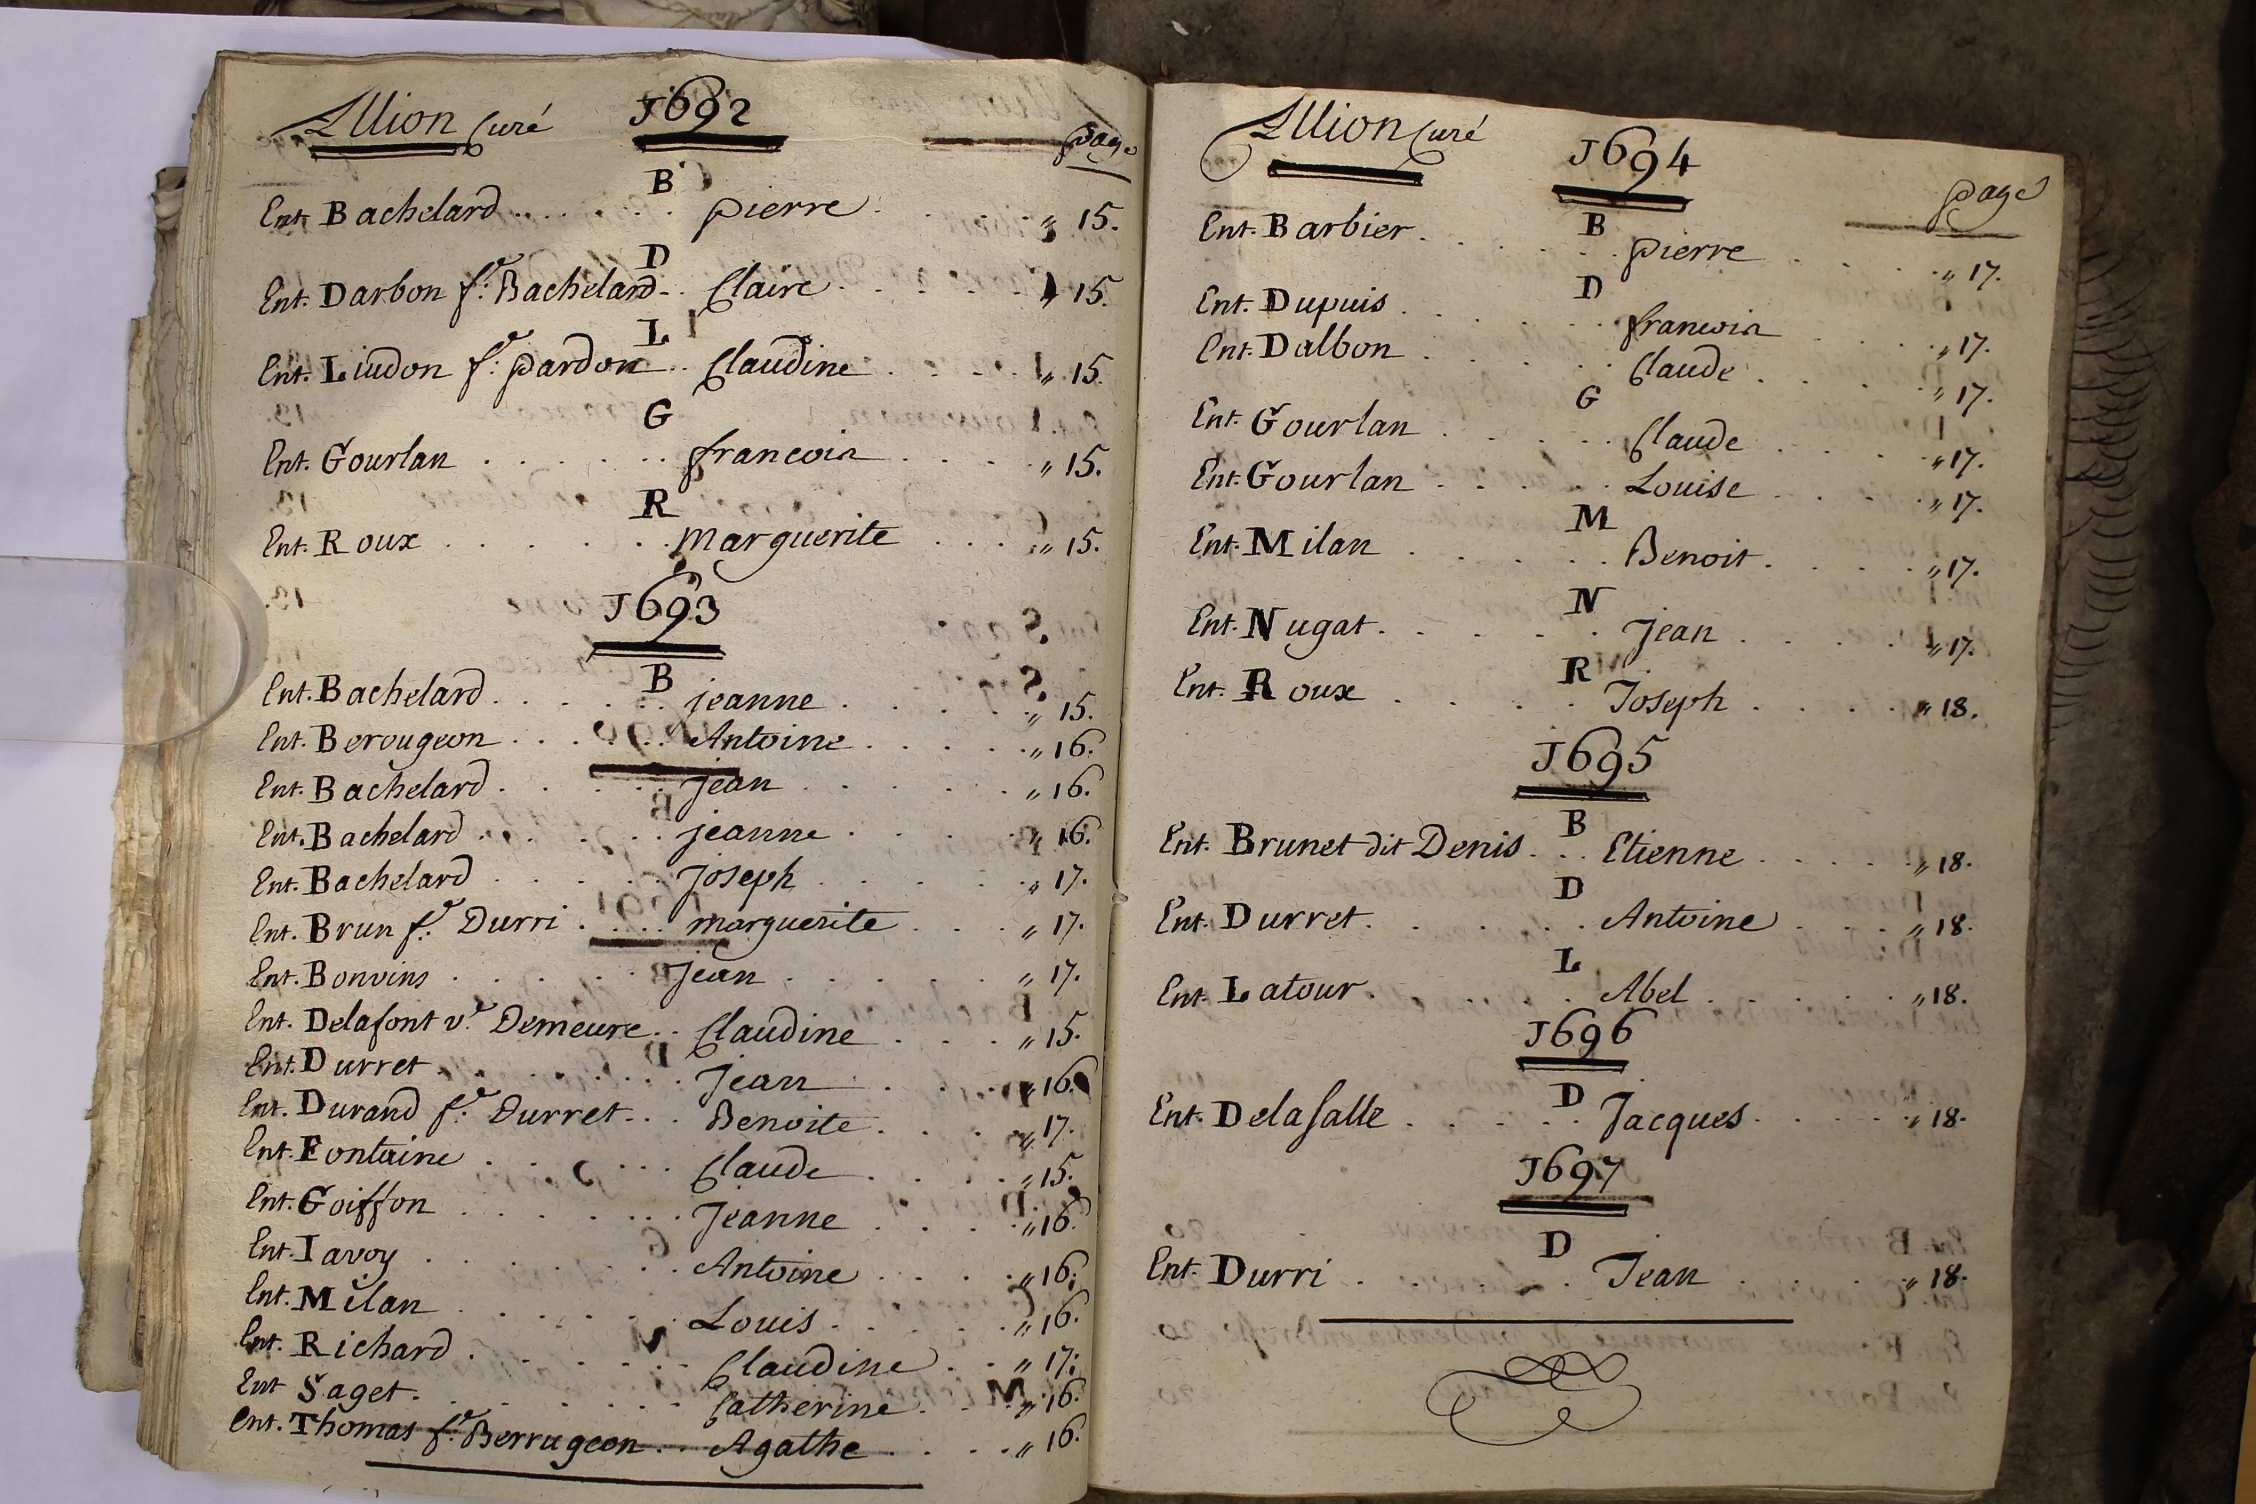 Allion Curé 1692 page
B
Ent. Bachelard . . . . . . pierre . . . . . „ 15.
D
Ent. Darbon f.e Bachelard . . Claire . . . . . . „ 15.
L
Ent. Liudon f.e pardon . . Claudine . . . . . „ 15.
G
Ent. Gourlan . . . . . . francois . . . . . „ 15.
R
Ent. Roux . . . . . . marguerite . . . . „ 15.
1693
B
Ent. Bachelard . . . . . . jeanne . . . . . . „ 15.
Ent. Berougeon . . . . . . Antoine . . . . . . „ 16.
Ent. Bachelard . . . . . . jean . . . . . . „ 16.
Ent. Bachelard . . . . . . jeanne . . . . . „ 16.
Ent. Bachelard . . . . . . joseph . . . . . . „ 17.
Ent. Brun f.e Durri . . . . marguerite . . . . „ 17.
Ent. Bonvins . . . . . . jean . . . . . . „ 17.
Ent. Delafont v.e Demeure . . Claudine . . . . „ 15.
Ent. Durret . . . . . . . jean . . . . . „ 16.
Ent. Durand f.e Durret . . . Benoite . . . . „ 17.
Ent. Fontaine . . . . . . Claude . . . . . „ 15.
Ent. Goiffon . . . . . . . Jeanne . . . . . „ 16.
Ent. Iavoy . . . . . . . Antoine . . . . . „ 16.
Ent. Milan . . . . . . . Louis . . . . . . „ 16.
Ent. Richard . . . . . . . Claudine . . „ 17.
Ent Saget . . . . . . . Catherine . . . . „ 16.
Ent. Thomas f.e Berrugeon . . Agathe . . . . „ 16.
Allion Curé 1694 page
B
Ent. Barbier . . . . . . pierre . . . . . „ 17.
D
Ent. Dupuis . . . . . . francois . . . . . „ 17.
Ent. Dalbon . . . . . . Claude . . . . . „ 17.
G
Ent. Gourlan . . . . . . Claude . . . . . „ 17.
Ent. Gourlan . . . . . . Louise . . . . . „ 17.
M
Ent. Milan . . . . . . Benoit . . . . . „ 17.
N
Ent. Nugat . . . . . . Jean . . . . . „ 17.
R
Ent. Roux . . . . . . Joseph . . . . . „ 18.
1695
B
Ent. Brunet dit Denis . . . Etienne . . . . . „ 18.
D
Ent. Durret . . . . . . Antoine . . . . „ 18.
L
Ent. Latour . . . . . . Abel . . . . . . „ 18.
1696
D
Ent. Delasalle . . . . . . Jacques . . . . . „ 18.
1697
D
Ent. Durri . . . . . . Jean . . . . . „ 18.